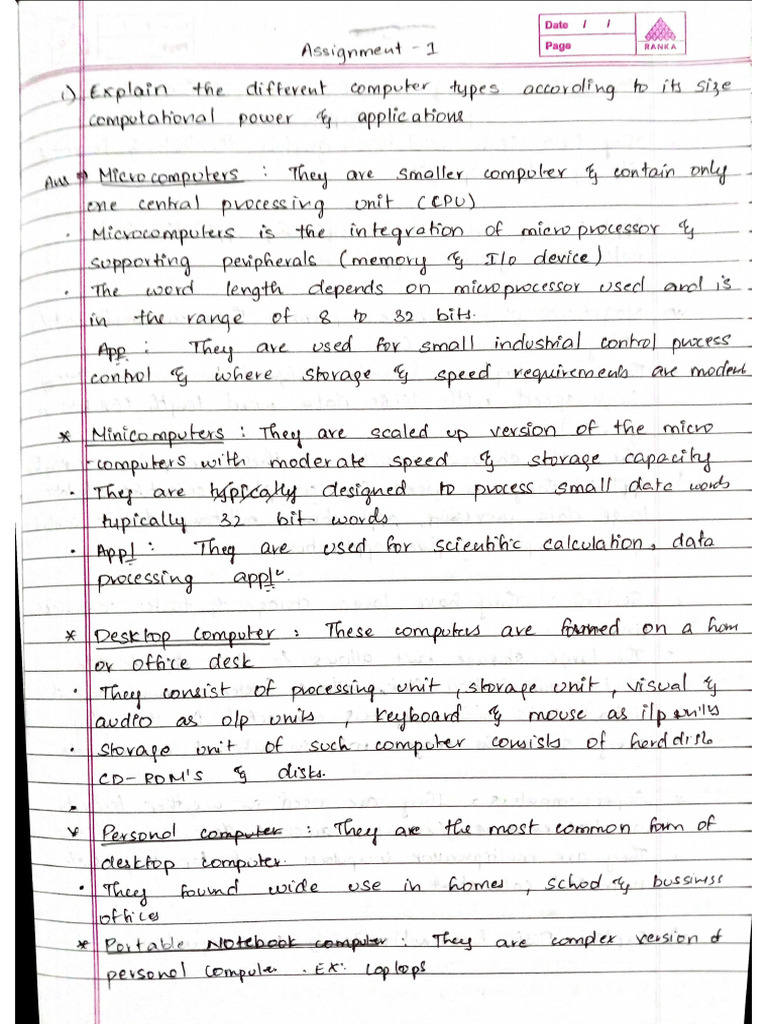 Date / /
Page
RANKA
Assignment - 1
i) Explain the different computer types according to its size
computational power & applications
Ans ⇒ Microcomputers : They are smaller computer & contain only
one central processing unit (CPU)
· Microcomputers is the integration of microprocessor &
supporting peripherals (memory & I/o device)
· The word length depends on microprocessor used and is
in the range of 8 to 32 bits.
App : They are used for small industrial control process
control & where storage & speed requirements are
* Minicomputers : They are scaled up version of the micro
computers with moderate speed & storage capacity
· They are typically designed to process small data words
typically 32 bit words
· Appl : They are used for scientific calculation, data
processing appl.
* Desktop computer : These computers are on a hom
or office desk
· They consist of processing unit, storage unit, visual &
audio as o/p units, keyboard & mouse as i/p units
· Storage unit of such computer consists of hard disk
CD-ROM's & disks.
* Personal computer : They are the most common form of
desktop computer.
· They found wide use in homes, school & bussiness
offices
* Portable Notebook computer : They are complex version of
personal computer. EX: Laptops